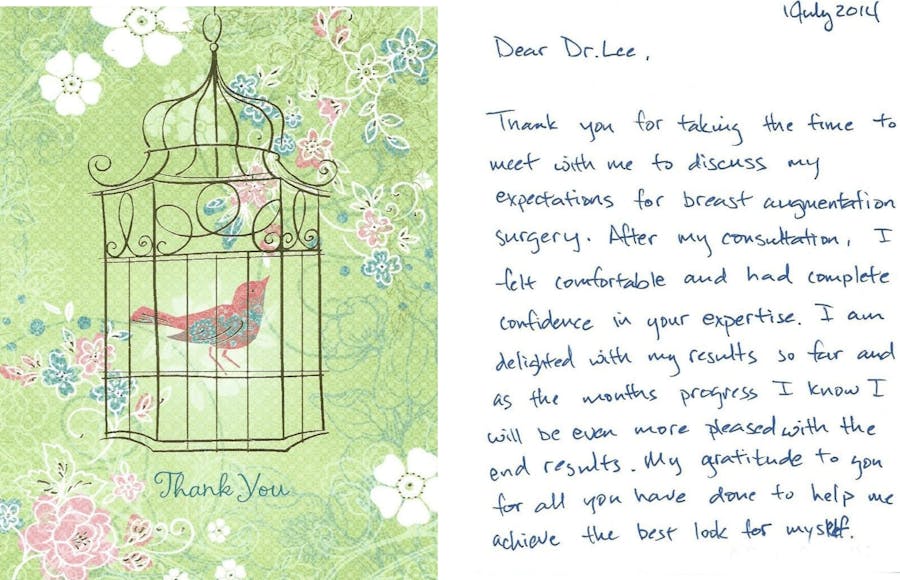 Thank You
1 July 2014
Dear Dr. Lee,
Thank you for taking the time to
meet with me to discuss my
expectations for breast augmentation
surgery. After my consultation, I
felt comfortable and had complete
confidence in your expertise. I am
delighted with my results so far and
as the months progress I know I
will be even more pleased with the
end results. My gratitude to you
for all you have done to help me
achieve the best look for myself.